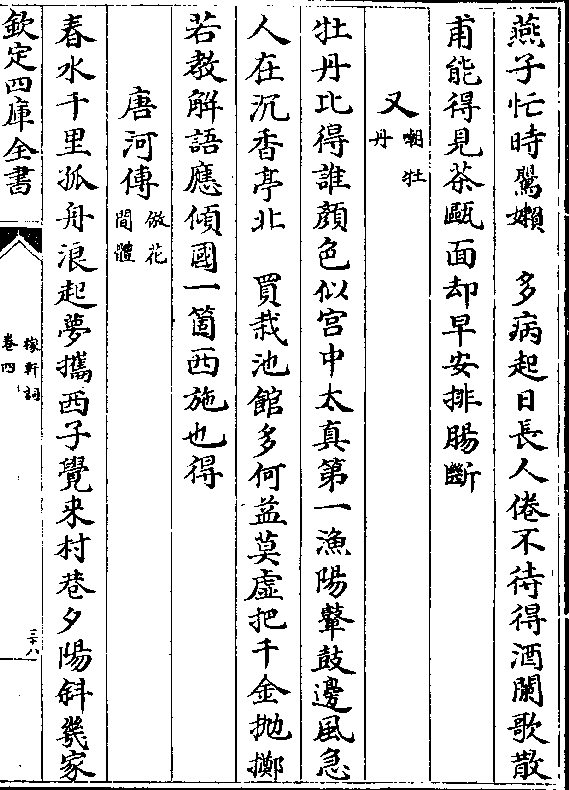 燕子忙時鶯嬾　多病起日長人倦不待得酒闌歌散
甫能得見茶甌面却早安排腸斷
又嘲牡丹
牡丹比得誰顔色似宫中太真第一漁陽鼙鼓邊風急
人在沉香亭北　買栽池館多何益莫虚把千金抛擲
若教解語應傾國一箇西施也得
唐河傳倣花間體
春水千里孤舟浪起夢攜西子覺来村巷夕陽斜幾家
欽定四庫全書
稼軒詞
卷四
三十八